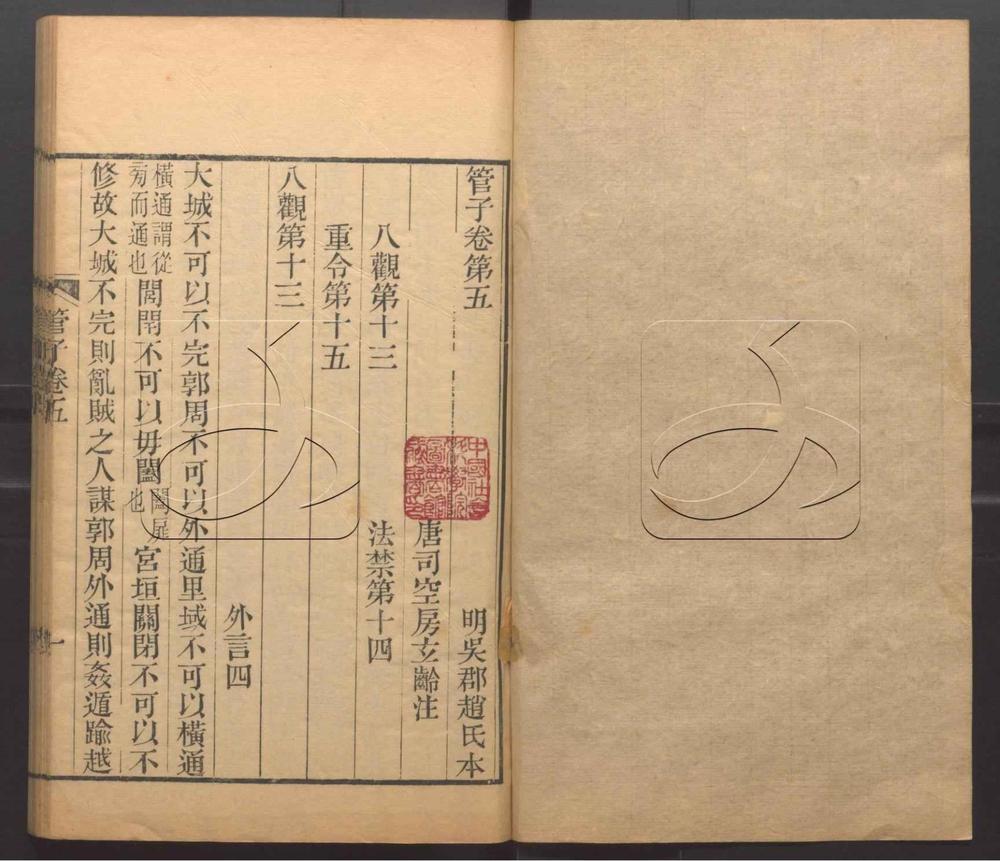 管子卷第五
明吳郡趙氏本
唐司空房玄齡注
八觀第十三
法禁第十四
重令第十五
八觀第十三
外言四
大城不可以不完郭周不可以外通里域不可以橫通
橫通謂從
旁而通也
閭閈不可以毋闔
闔扉
也
宮垣關閉不可以不
修故大城不完則亂賊之人謀郭周外通則姦遁踰越
管子卷五
一